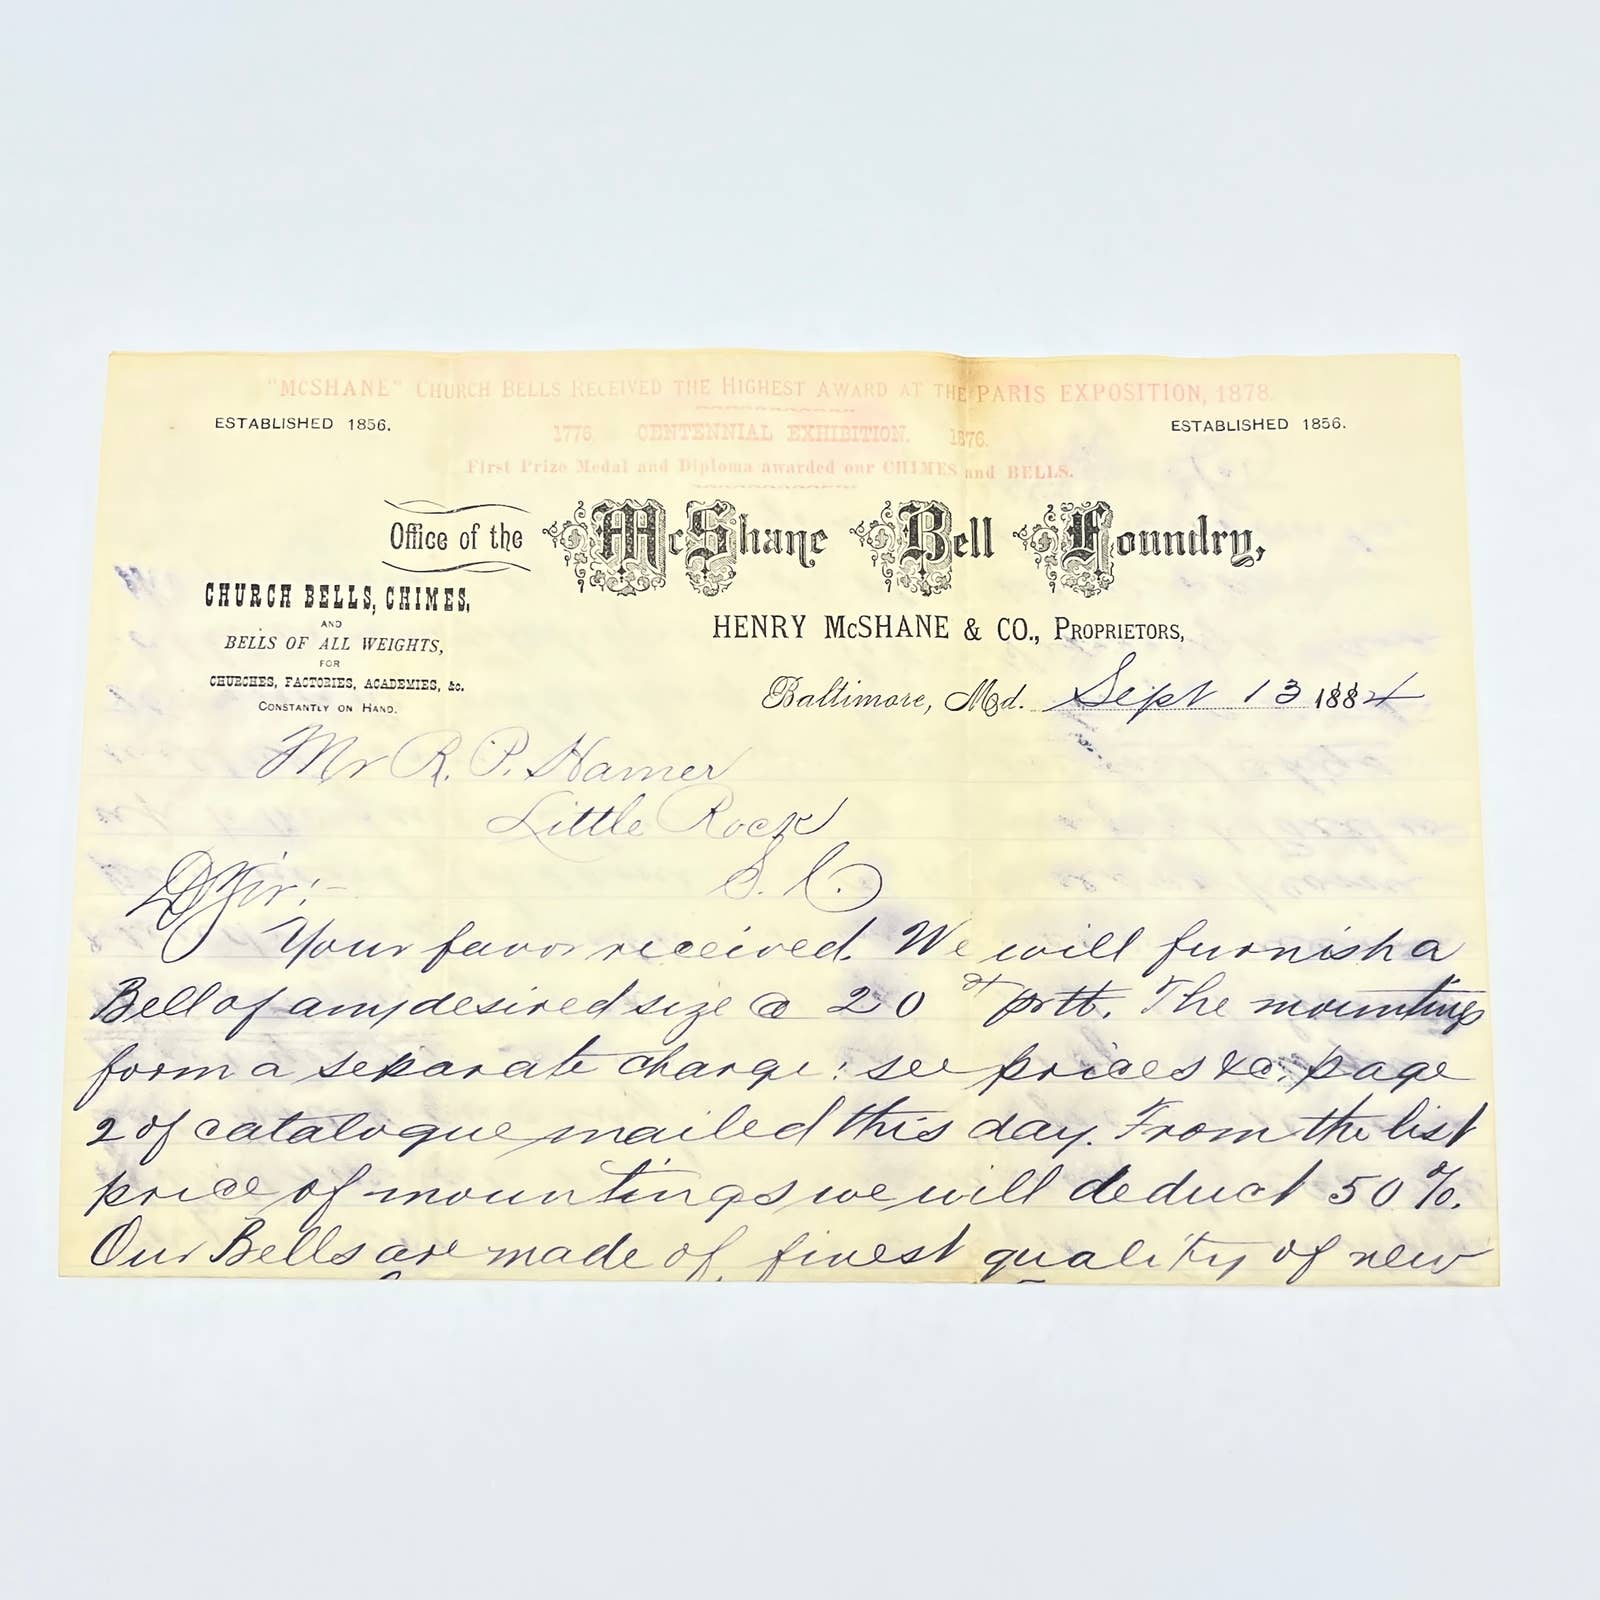 "McSHANE" CHURCH BELLS RECEIVED THE HIGHEST AWARD AT THE PARIS EXPOSITION, 1878.
ESTABLISHED 1856.
ESTABLISHED 1856.
1776. CENTENNIAL EXHIBITION. 1876.
First Prize Medal and Diploma awarded our CHIMES and BELLS.
Office of the McShane Bell Foundry,
CHURCH BELLS, CHIMES,
AND
BELLS OF ALL WEIGHTS,
FOR
CHURCHES, FACTORIES, ACADEMIES, &c.
CONSTANTLY ON HAND.
HENRY McSHANE & CO., PROPRIETORS,
Baltimore, Md. Sept 13 1884
Mr R. P. Hamer
Little Rock
S. C.
D Sir:-
Your favor received. We will furnish a
Bell of any desired size @ 20 ct pr lb. The mountings
form a separate charge: see prices &c. page
2 of catalogue mailed this day. From the list
price of mountings we will deduct 50%.
Our Bells are made of finest quality of new